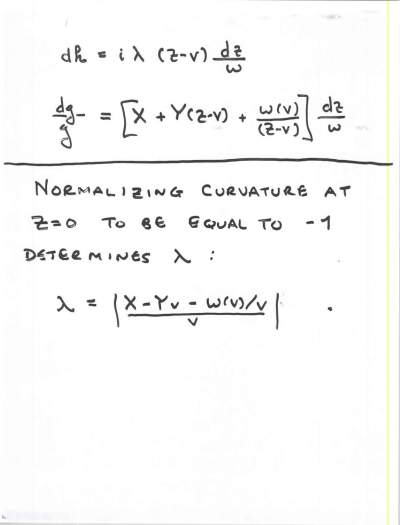 dh = i λ (z-v) dz/w
dg/g = [X + Y(z-v) + w(v)/(z-v)] dz/w
NORMALIZING CURVATURE AT
Z=0 TO BE EQUAL TO -1
DETERMINES λ :
λ = |(X - Yv - w(v)/v)/v| .